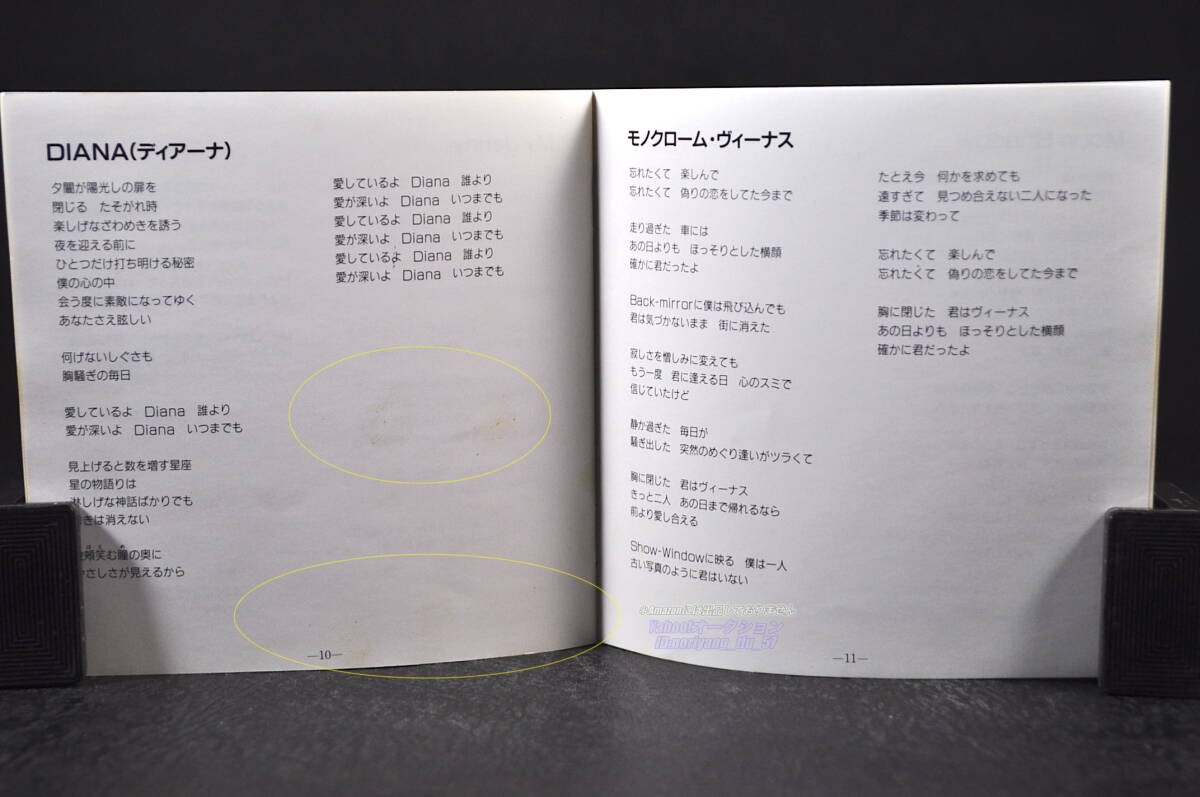 DIANA(ディアーナ)
夕闇が陽光しの扉を
閉じる たそがれ時
楽しげなざわめきを誘う
夜を迎える前に
ひとつだけ打ち明ける秘密
僕の心の中
会う度に素敵になってゆく
あなたさえ眩しい
何げないしぐさも
胸騒ぎの毎日
愛しているよ Diana 誰より
愛が深いよ Diana いつまでも
見上げると数を増す星座
星の物語りは
淋しげな神話ばかりでも
きは消えない
頬笑む瞳の奥に
やさしさが見えるから
愛しているよ Diana 誰より
愛が深いよ Diana いつまでも
愛しているよ Diana 誰より
愛が深いよ Diana いつまでも
愛しているよ Diana 誰より
愛が深いよ Diana いつまでも
—10—
モノクローム・ヴィーナス
忘れたくて 楽しんで
忘れたくて 偽りの恋をしてた今まで
走り過ぎた 車には
あの日よりも ほっそりとした横顔
確かに君だったよ
Back-mirrorに僕は飛び込んでも
君は気づかないまま 街に消えた
寂しさを憎しみに変えても
もう一度 君に逢える日 心のスミで
信じていたけど
静か過ぎた 毎日が
騒ぎ出した 突然のめぐり逢いがツラくて
胸に閉じた 君はヴィーナス
きっと二人 あの日まで帰れるなら
前より愛し合える
Show-Windowに映る 僕は一人
古い写真のように君はいない
たとえ今 何かを求めても
遠すぎて 見つめ合えない二人になった
季節は変わって
忘れたくて 楽しんで
忘れたくて 偽りの恋をしてた今まで
胸に閉じた 君はヴィーナス
あの日よりも ほっそりとした横顔
確かに君だったよ
※Amazonには出品しておりません
Yahoo!オークション
—11—